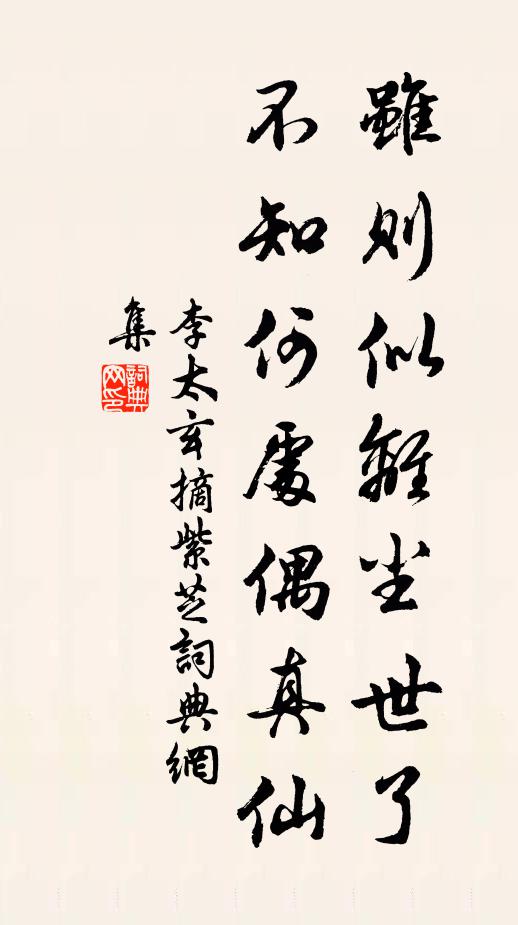 雖則似離尘世了
不知何處偶真仙
李太玄摘紫芝詞典網
集
詞典
网印